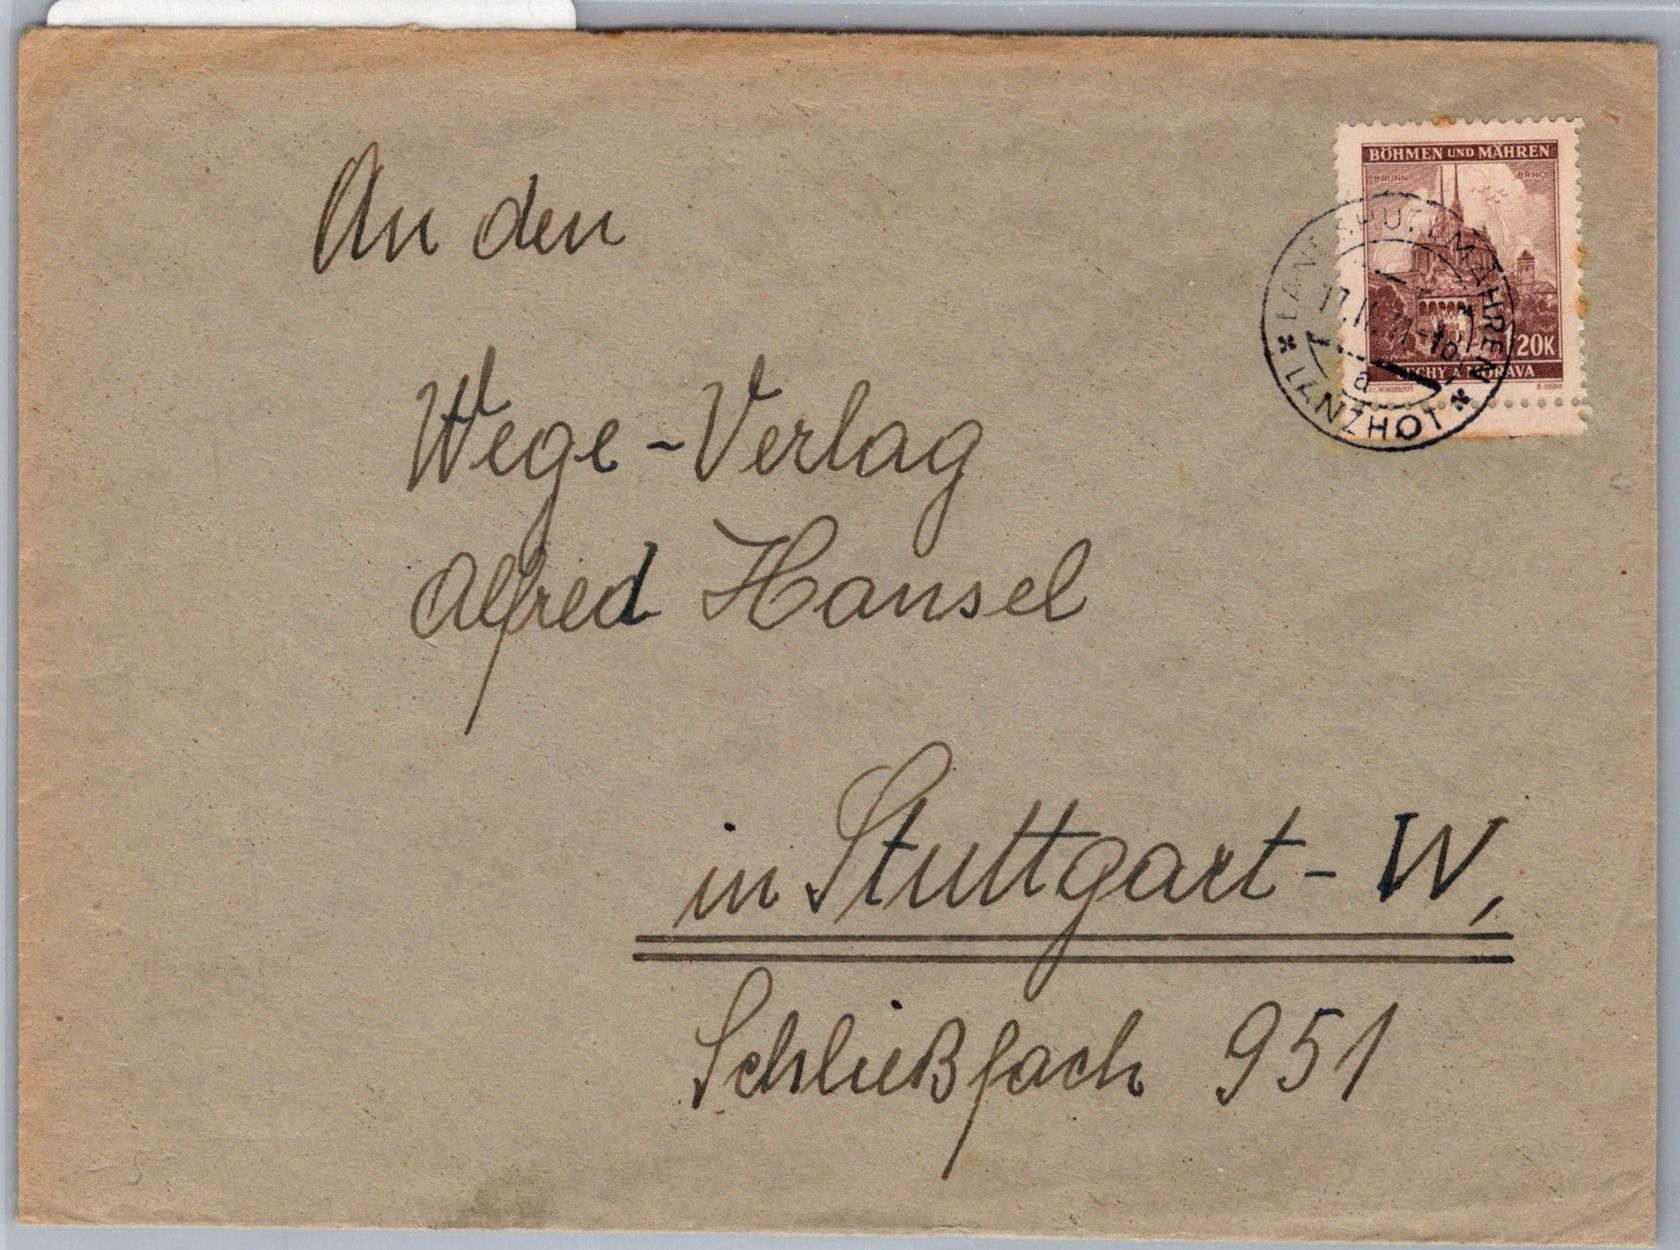 An den
Wege-Verlag
Alfred Hansel
in Stuttgart-W,
Schließfach 951
BÖHMEN UND MÄHREN
BRÜNN BRNO
1'20K
ČECHY A MORAVA
LANDSHUT I. MÄHREN
17.
a
LANŽHOT